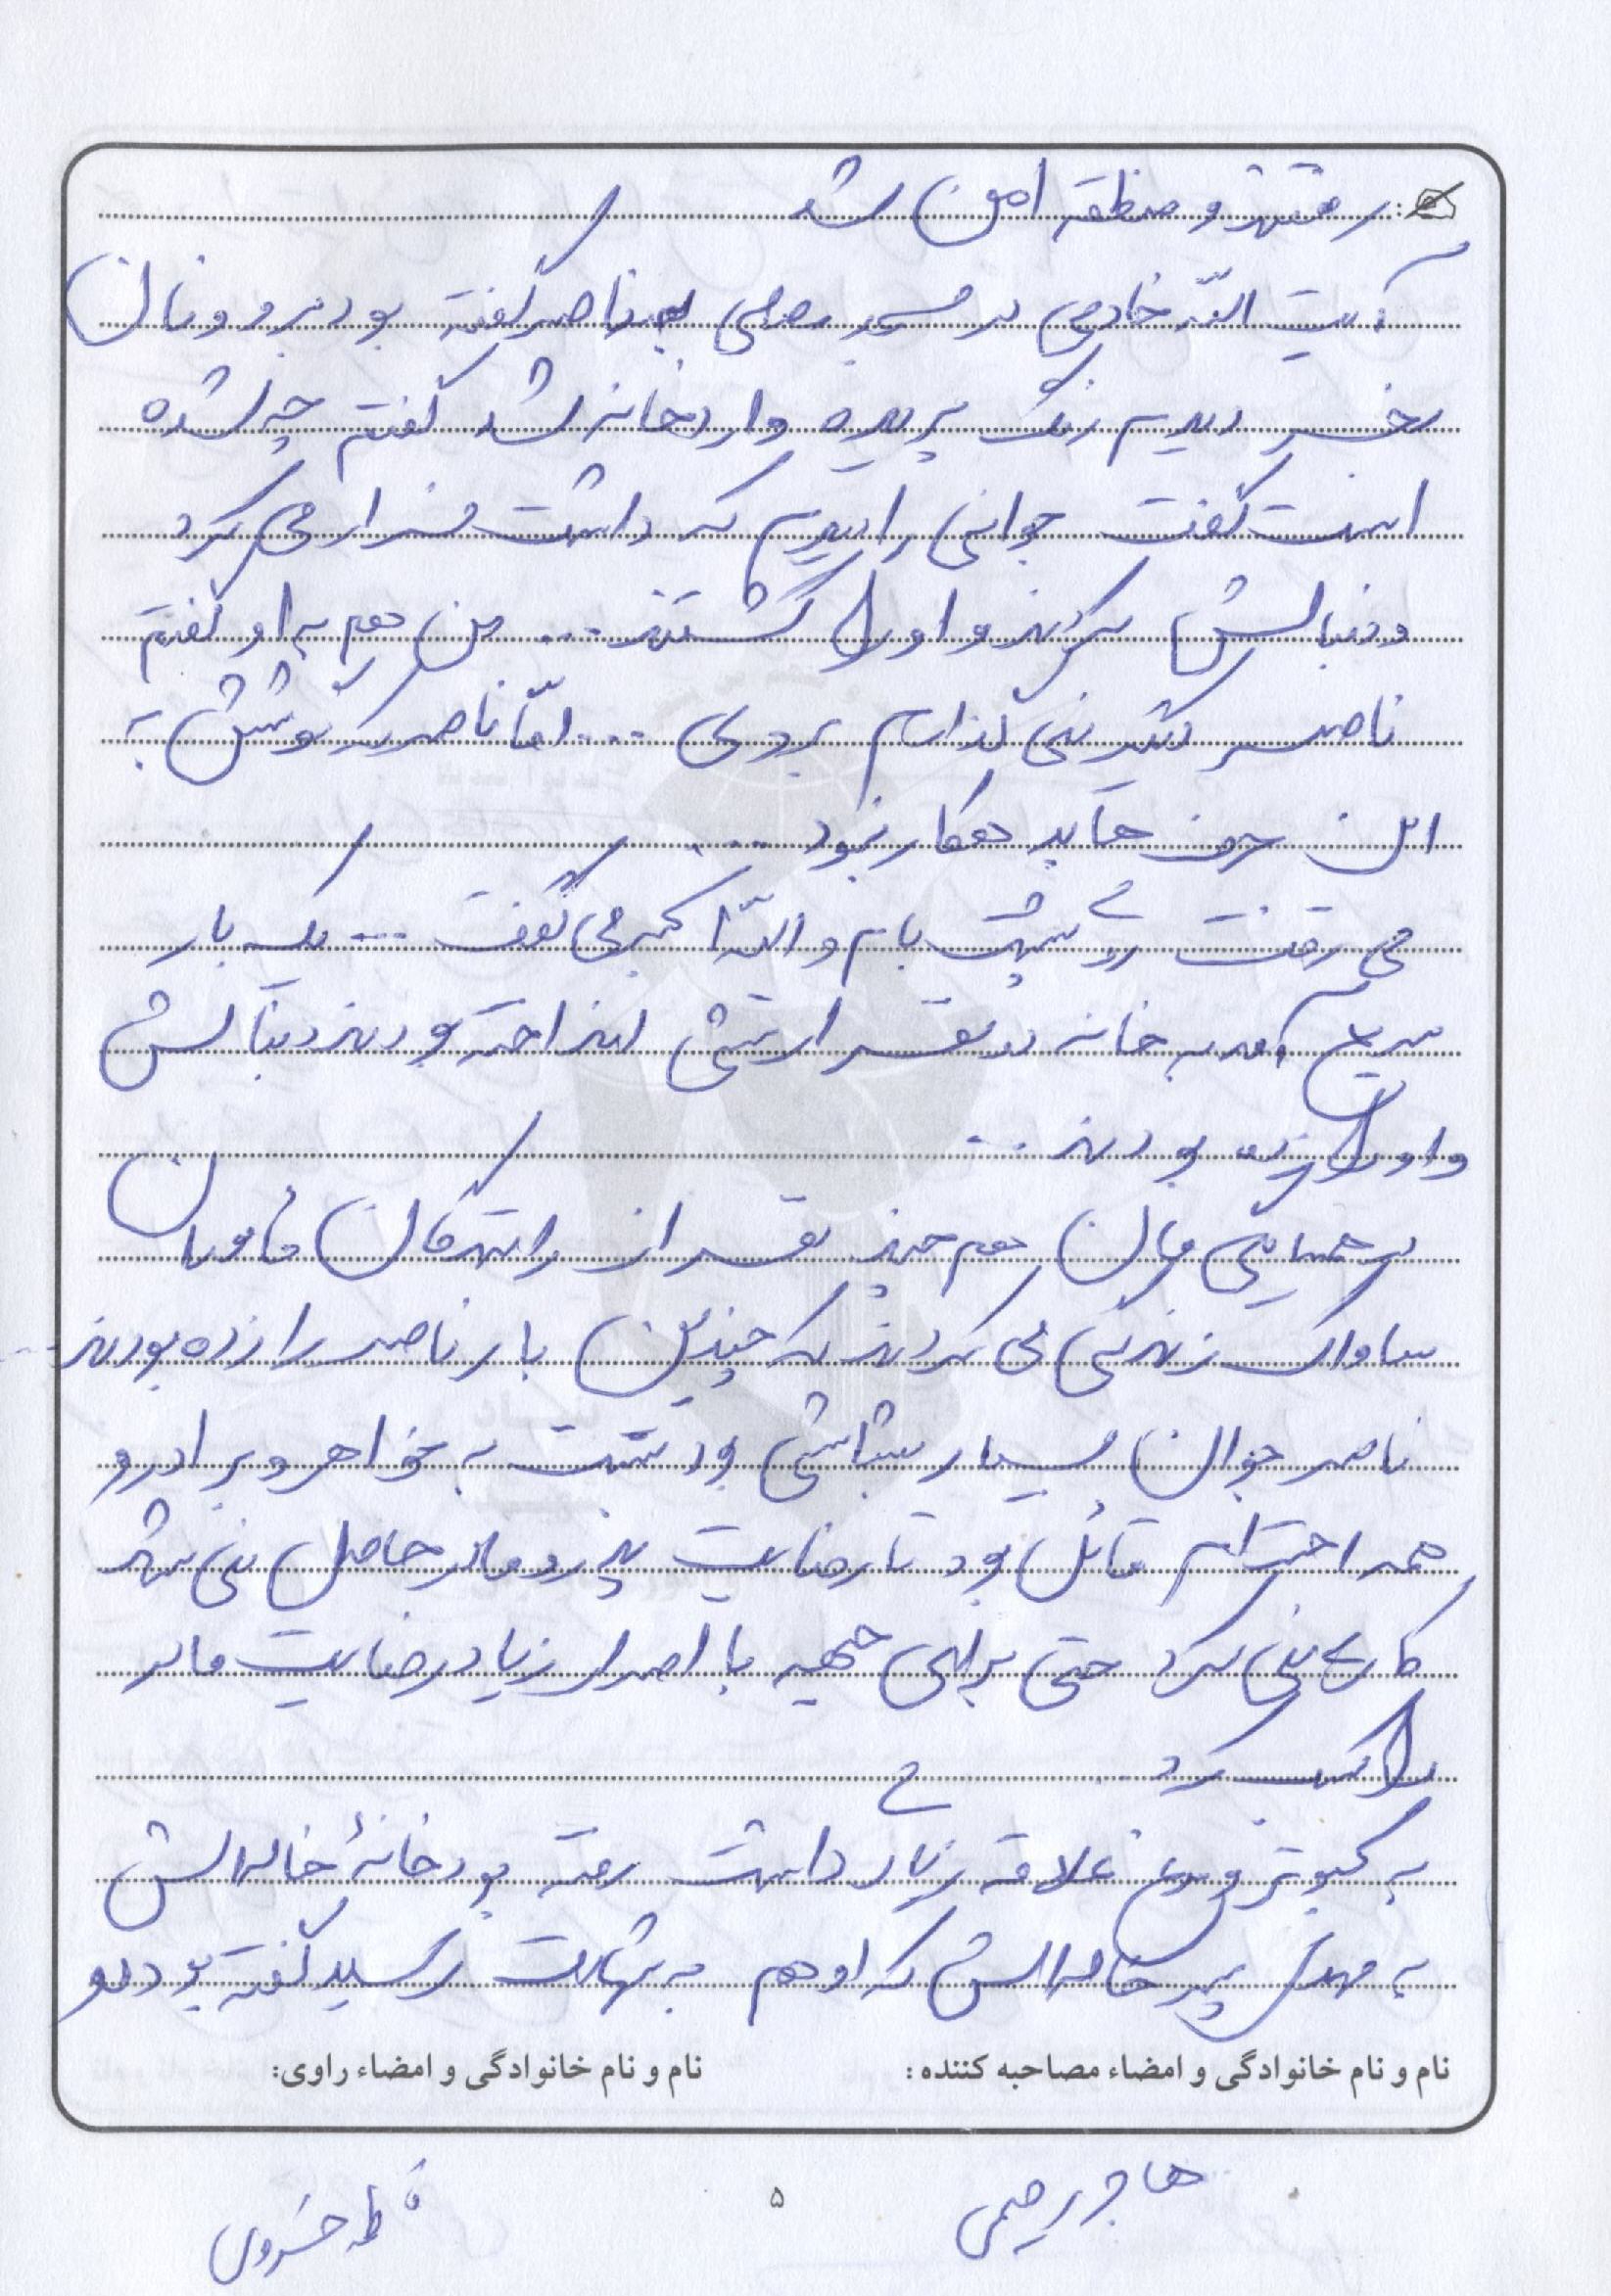 رفتند و منطقه امن شد
آیت الله خادمی در مسجد به ناصر گفته بود برو و نان
بخر دیدم رنگ پریده وارد خانه شد گفتم چه شده
است گفت جوانی را دیدم که داشت فرار می کرد
دنبالش کردند و او را کشتند ... من هم به او گفتم
ناصر دیگر نمی گذارم بروی ... امّا ناصر که گوشش به
این حرف ها بدهکار نبود ...
می رفت روی پشت بام و اللّه اکبر می گفت ... یک بار
سریع آمد به خانه دو نفر ارتشی انداخته بودند دنبالش
و او را زده بودند ...
در همسایگی مان هم چند نفر از مأموران
ساواک زندگی می کردند که چندین بار ناصر را زده بودند ...
ناصر جوان بسیار بشاشی بود نسبت به خواهر و برادر و
همه احترام قائل بود تا رضایت پدر و مادر حاصل نمی شد
کاری نمی کرد حتی برای جبهه با اصرار زیاد رضایت مادر
را کسب کرد
به کبوتر و مرغ علاقه زیاد داشت رفته بود خانۀ خاله اش
به مهدی پسر خاله اش که او هم به شهادت رسید گفته بود
نام و نام خانوادگی و امضاء مصاحبه کننده : نام و نام خانوادگی و امضاء راوی:
هاجر رحیمی ۵ خسروی